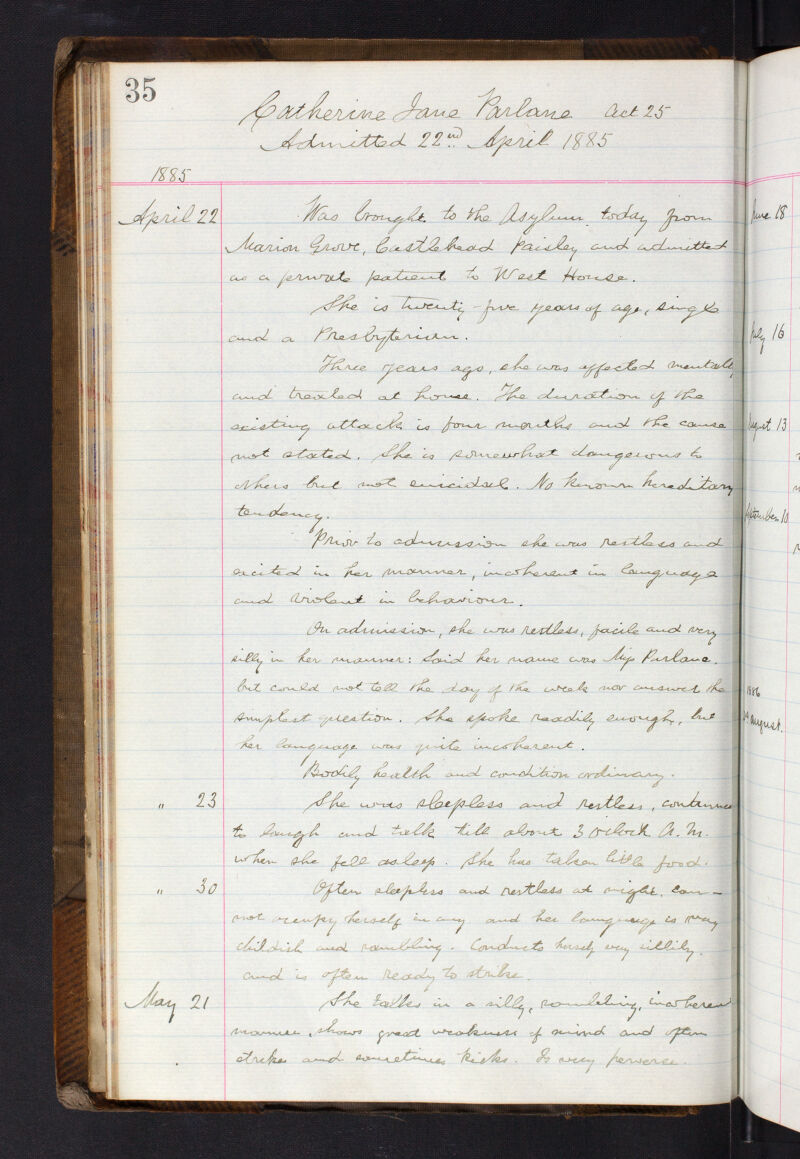 35
Catherine Jane Parlane aet 25
Admitted 22nd April 1885
1885
April 22 Was brought to the Asylum today from
Marion Grove, Castlehead Paisley and admitted
as a private patient to West House.
She is twenty-five years of age, single
and a Presbyterian.
Three years ago, she was affected mentally
and treated at house. The duration of the
existing attack is four months and the cause
not stated. She is somewhat dangerous to
others but not suicidal. No known hereditary
tendency.
Prior to admission she was restless and
excited in her manner, incoherent in language
and violent in behaviour.
On admission, she was restless, facile and very
silly in her manner: Said her name was Miss Parlane.
but could not tell the day of the week nor answer the
simplest question. She spoke readily enough, but
her language was quite incoherent.
Bodily health and condition ordinary.
" 23 She was sleepless and restless, continued
to laugh and talk till about 3 o'clock A.M.
when she fell asleep. She has taken little food.
" 30 Often sleepless and restless at night. Can-
not occupy herself in any and her language is very
childish and rambling. Conducts herself very sillily.
and is often ready to strike.
May 21 She talks in a silly, rambling, incoherent
manner, shows great weakness of mind and often
strikes and sometimes kicks. Is very perverse.
June 18
July 16
August 13
September 10
1886
August.